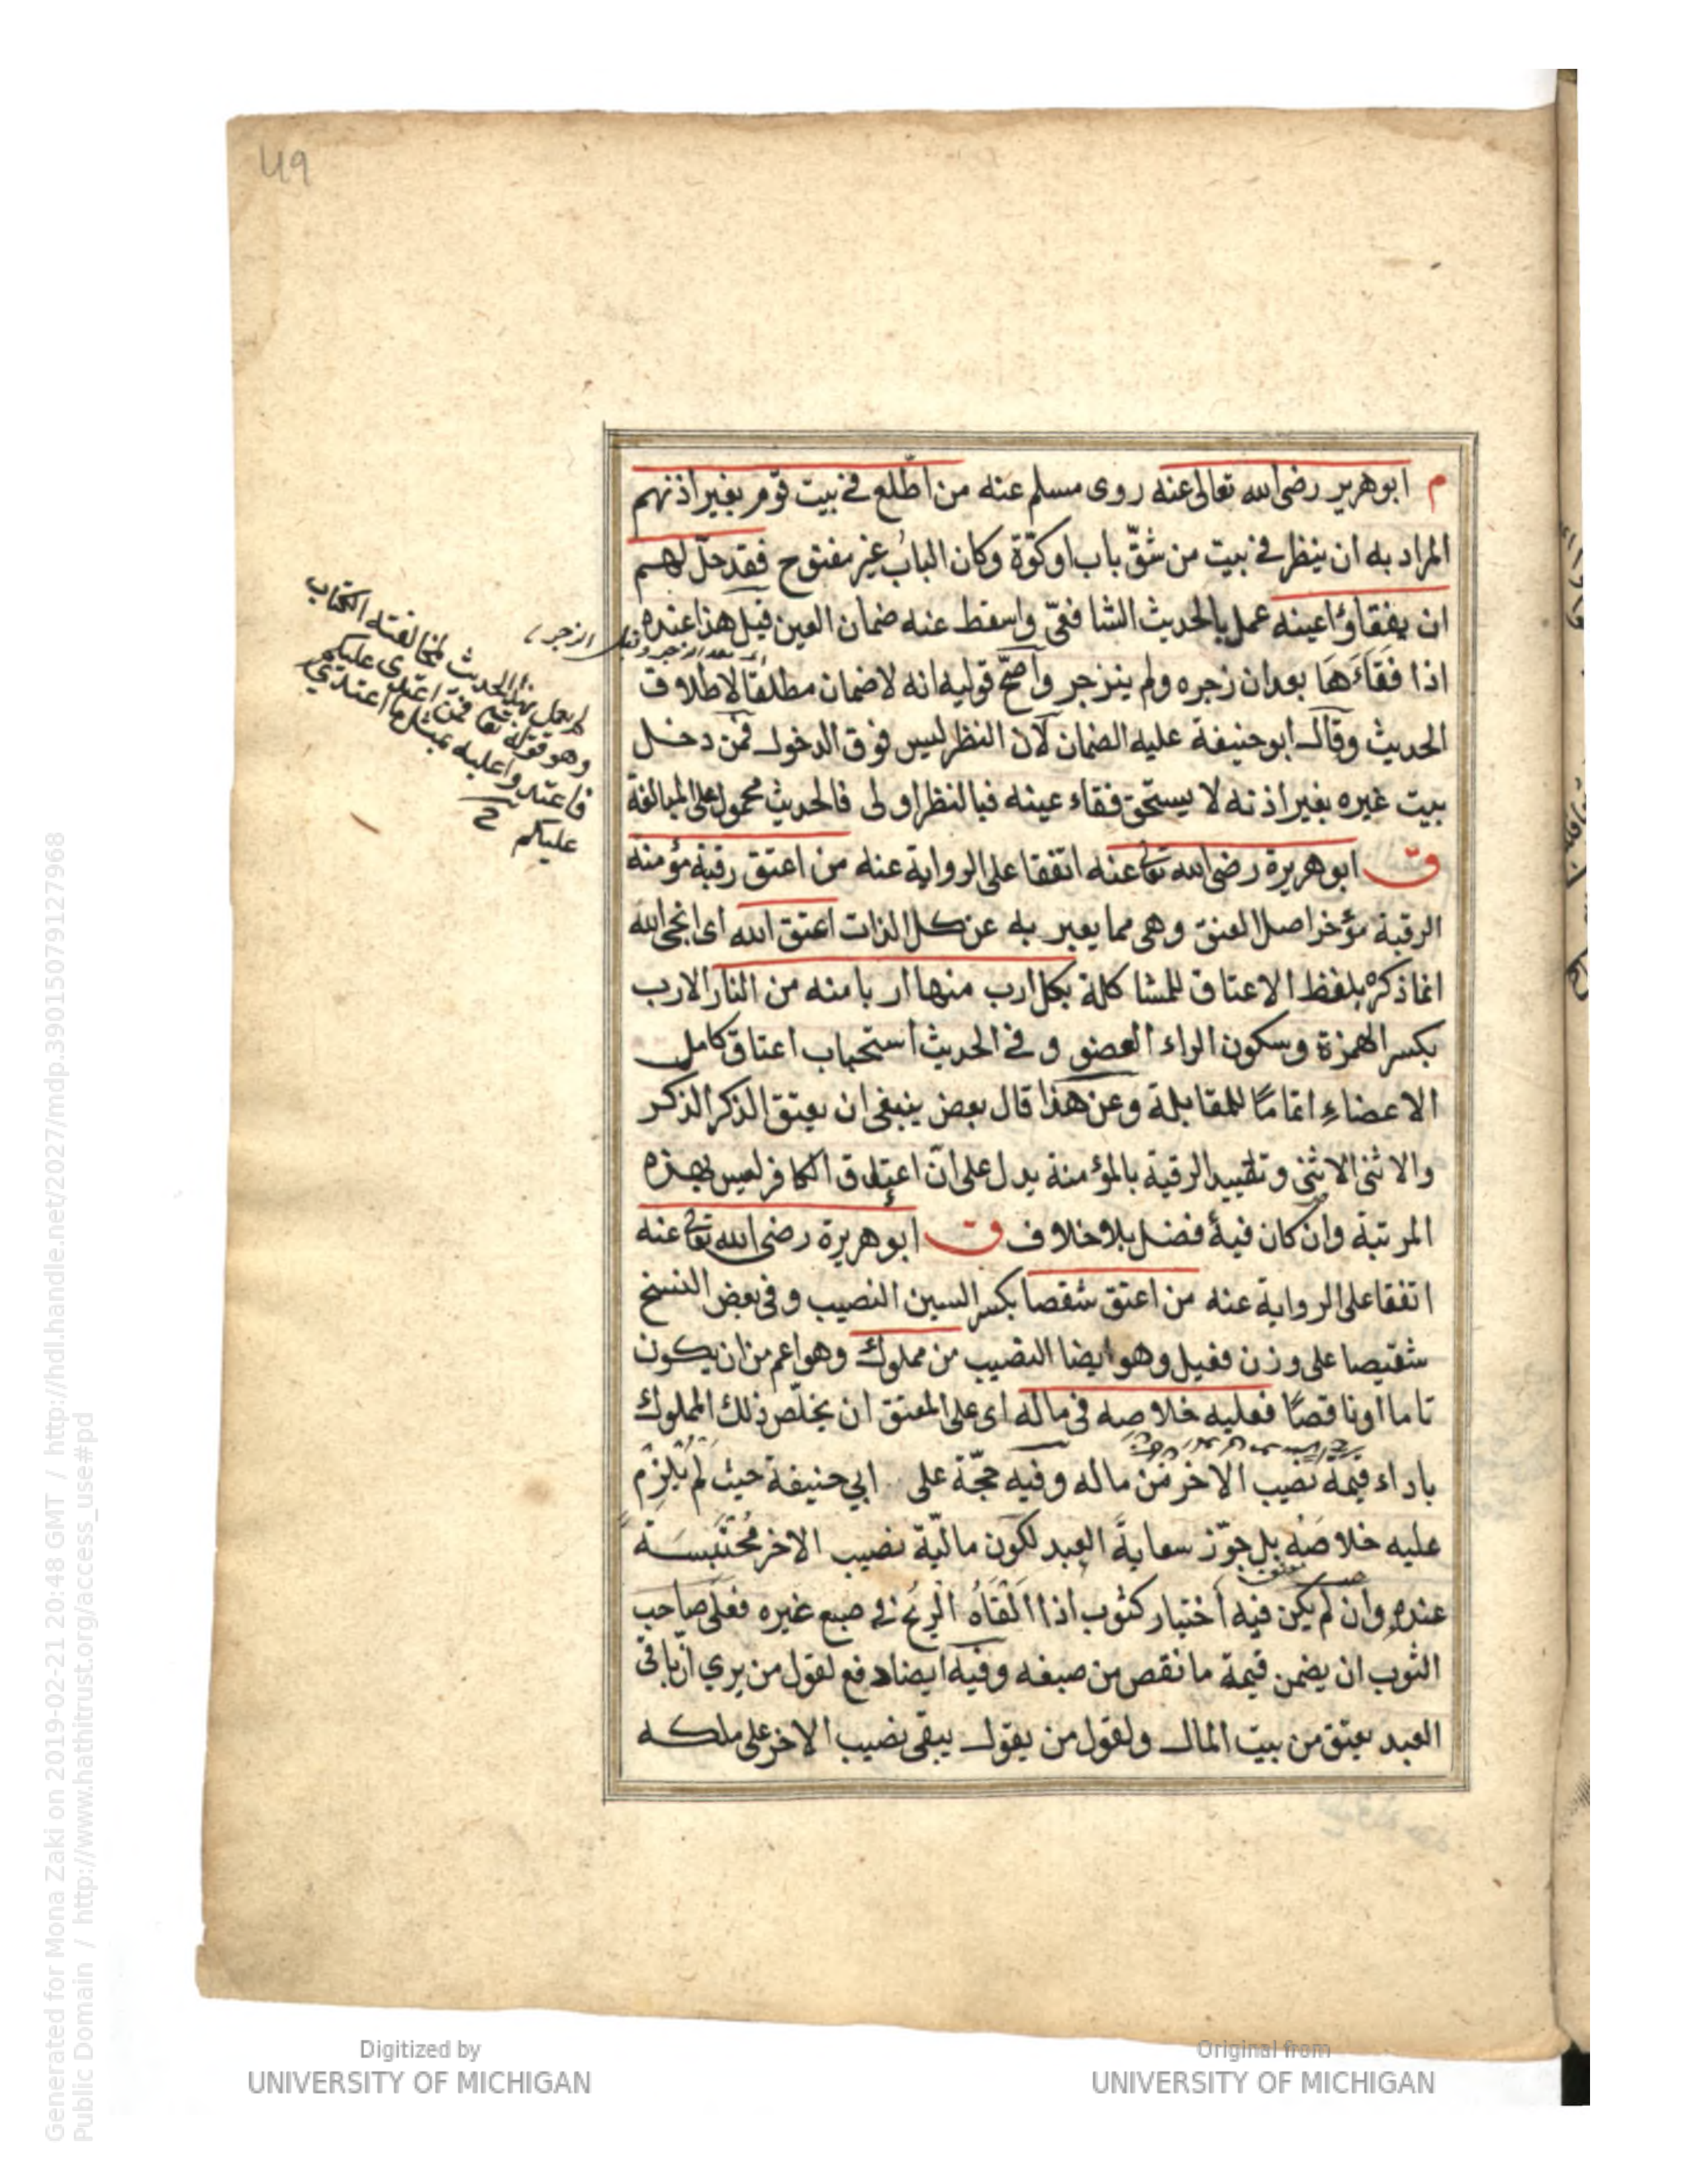 49
م ابوهرير رضى الله تعالى عنه روى مسلم عنه من اطّلع فى بيت قوم بغير اذنهم
المراد به ان ينظر فى بيت من شقّ باب او كوّة وكان البابُ غير مفتوح فقد حلّ لهم
ان يفقاؤا عينه عمل بالحديث الشافعّى واسقط عنه ضمان العين قيل هذا عنده
اذا فقاءَهَا بعد ان زجره ولم ينزجر واصحّ قوليه انه لا ضمان مطلقا لاطلاق
الحديث وقال ابو حنيفة عليه الضمان لان النظر ليس فوق الدخول فمن دخل
بيت غيره بغير اذنه لا يستحّق فقاء عينه فبالنظر اولى فالحديث محمول على المبالغة
ق ابوهريرة رضى الله تعالى عنه اتفقا على الرواية عنه من اعتق رقبة مؤمنة
الرقبة مؤخر اصل العنق وهى مما يعبر به عن كل الذات اعتق الله اى انجى الله
انما ذكره بلفظ الاعتاق للمشاكلة بكل ارب منها اربا منه من النار الارب
بكسر الهمزة وسكون الراء العضو وفى الحديث استحباب اعتاق كامل
الاعضاءِ اتمامًا للمقابلة وعن هذا قال بعض ينبغى ان يعتق الذكر الذكر
والانثى الانثى وتقييد الرقبة بالمؤمنة يدل على انّ اعتاق الكافر ليس بهذه
المرتبة وان كان فيه فضل بلا خلاف ق ابوهريرة رضى الله تعالى عنه
اتفقا على الرواية عنه من اعتق شقصا بكسر الشين النصيب وفى بعض النسخ
شقيصا على وزن فعيل وهو ايضا النصيب من مملوك وهو اعم من ان يكون
تاما او ناقصًا فعليه خلاصه فى ماله اى على المعتق ان يخلّص ذلك المملوك
باداء قيمة نصيب الاخر من ماله وفيه حجّة على ابي حنيفة حيث لم يُلزم
عليه خلاصَه بل جوّز سعايةَ العبد لكون ماليّة نصيب الاخر مُحتَبسَة
عنده وان لم يكن فيه اختيار كثوب اذا القَاهُ الريحُ فى صبع غيره فعلى صاحب
الثوب ان يضمن قيمة ما نقص من صبغه وفيه ايضا دفع لقول من يري انّ باقى
العبد يعتق من بيت المال ولقول من يقول يبقى نصيب الاخر على ملكه
لم يعمل بهذا الحديث لمخالفته الكتاب
وهو قوله تعا فمن اعتدى عليكم
فاعتدوا عليه بمثل ما اعتدي
عليكم
Digitized by
UNIVERSITY OF MICHIGAN
Original from
UNIVERSITY OF MICHIGAN
Generated for Mona Zaki on 2019-02-21 20:48 GMT / http://hdl.handle.net/2027/mdp.39015079127968
Public Domain / http://www.hathitrust.org/access_use#pd